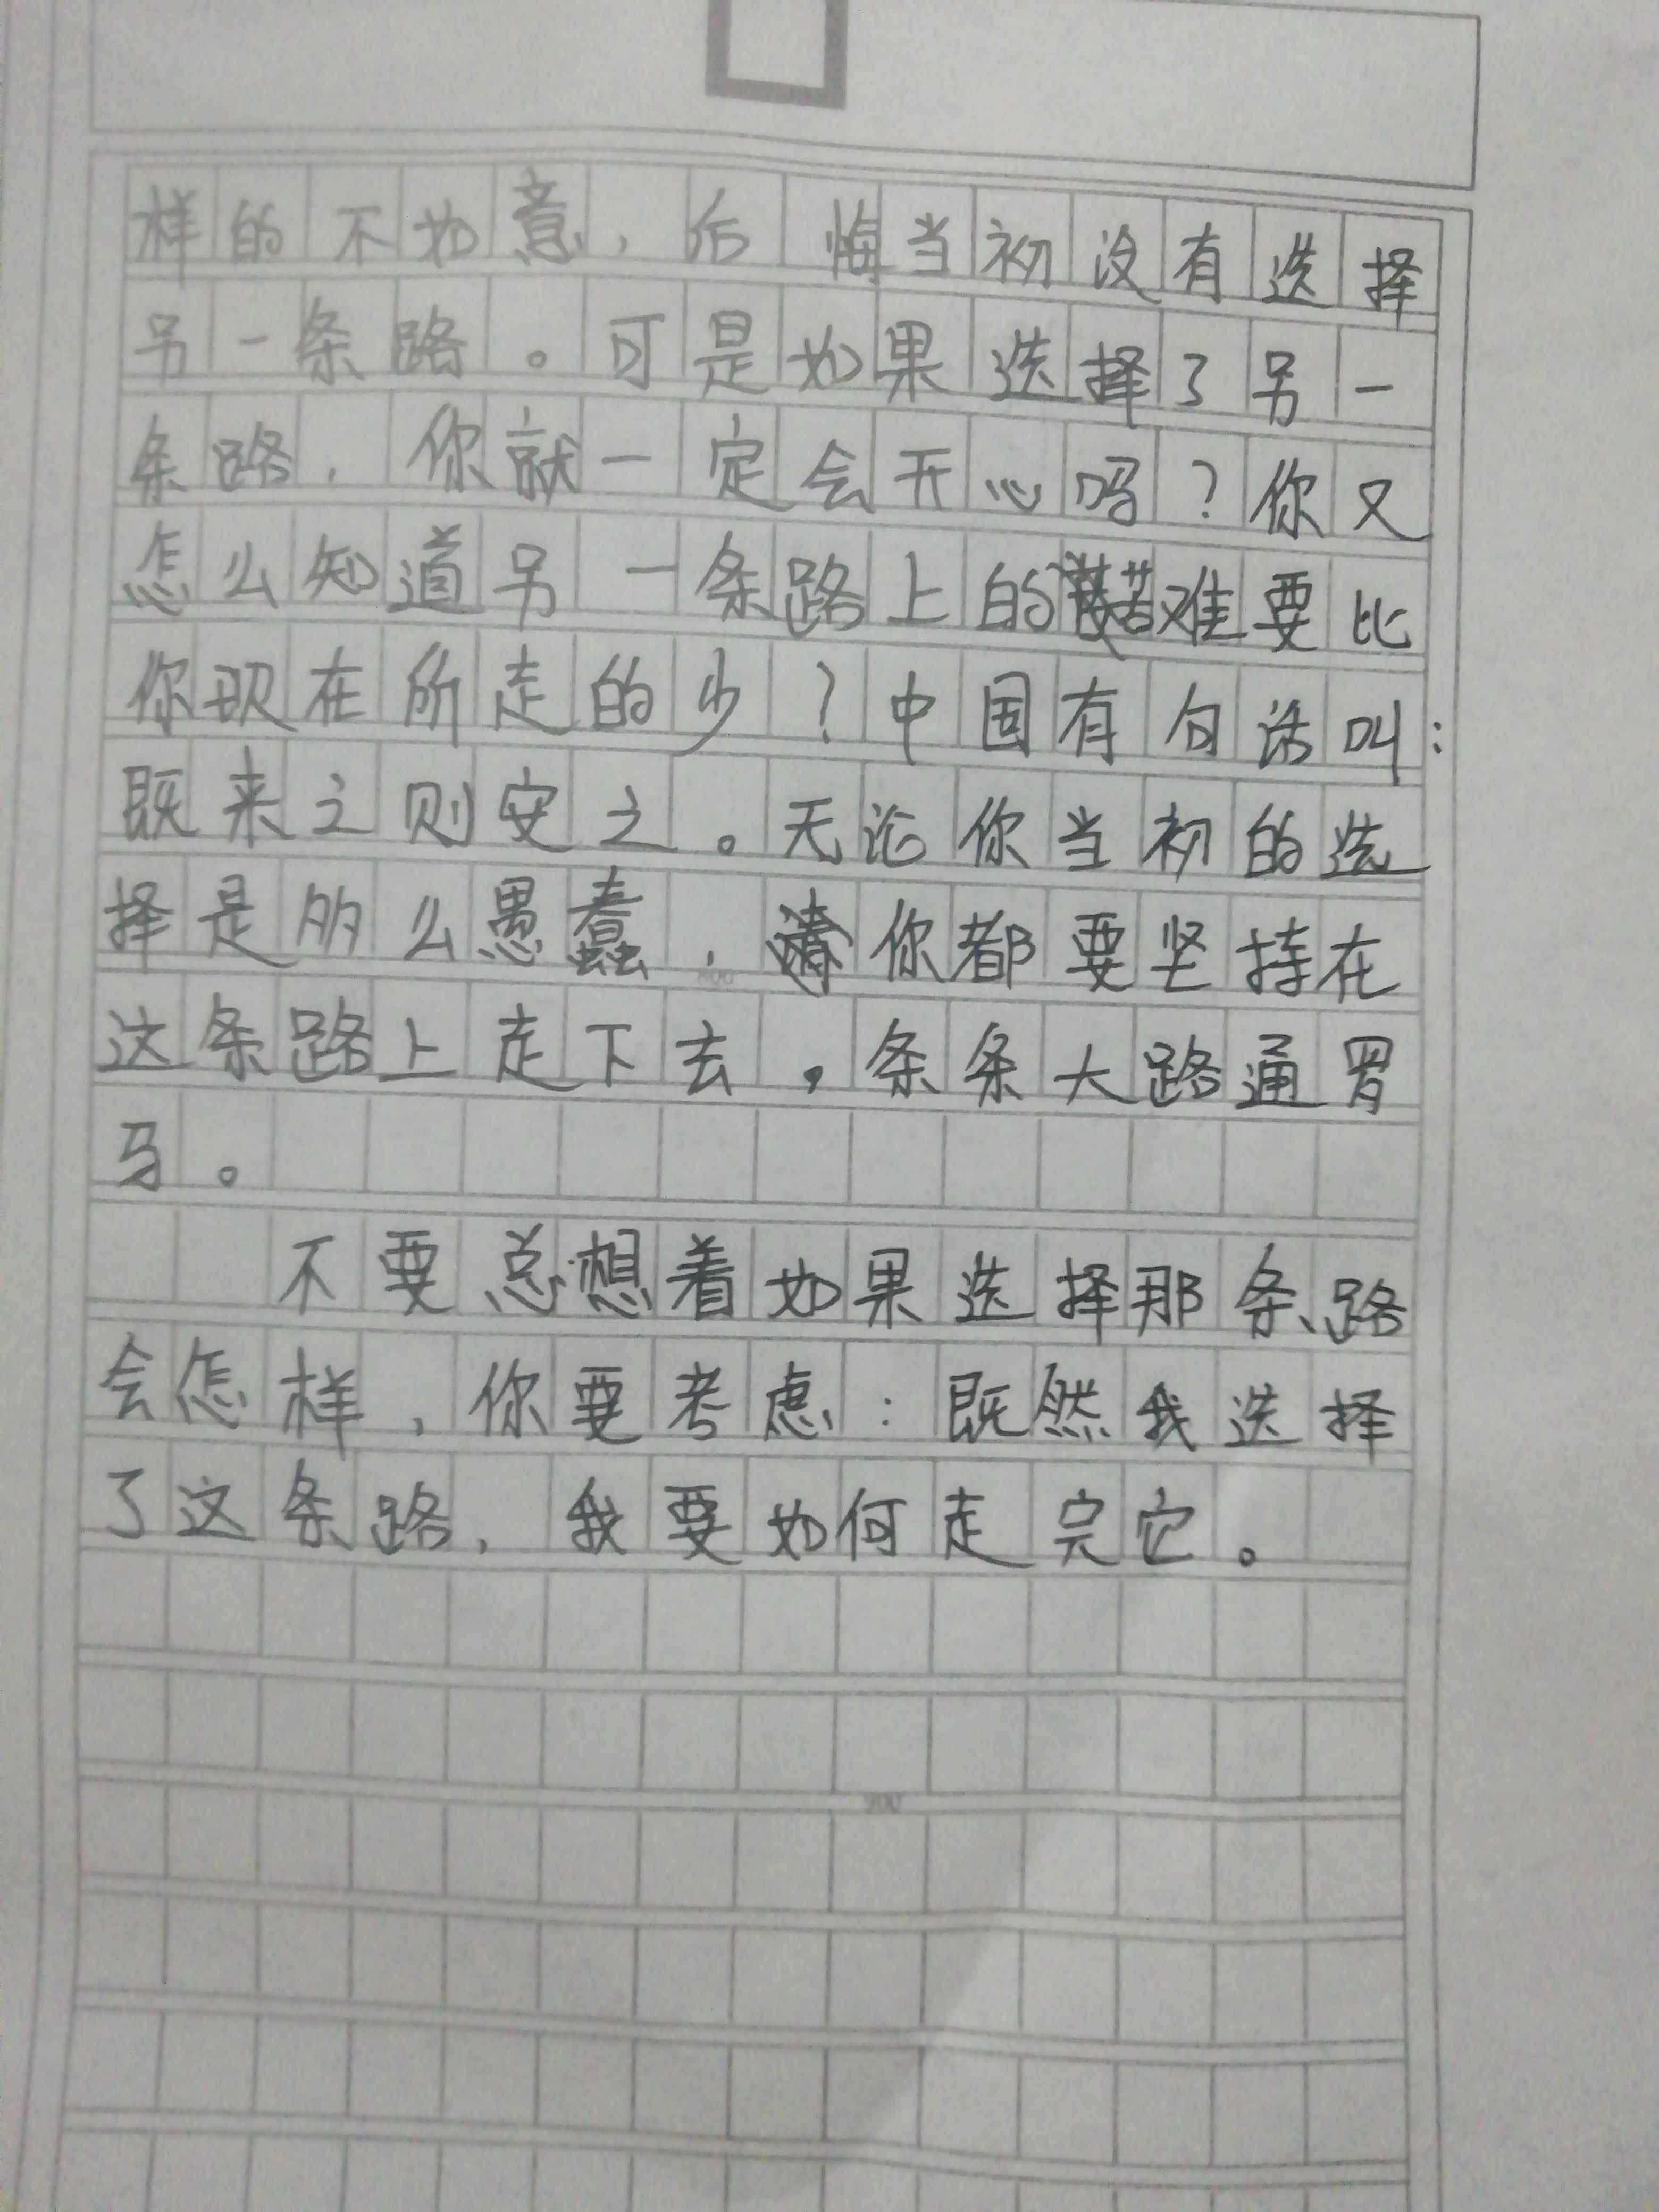 样的不如意，后悔当初没有选择
另一条路。可是如果选择了另一
条路，你就一定会开心吗？你又
怎么知道另一条路上的苦难要比
你现在所走的少？中国有句话叫：
既来之则安之。无论你当初的选
择是多么愚蠢，你都要坚持在
800
这条路上走下去，条条大路通罗
马。
不要总想着如果选择那条路
会怎样，你要考虑：既然我选择
了这条路，我要如何走完它。
900